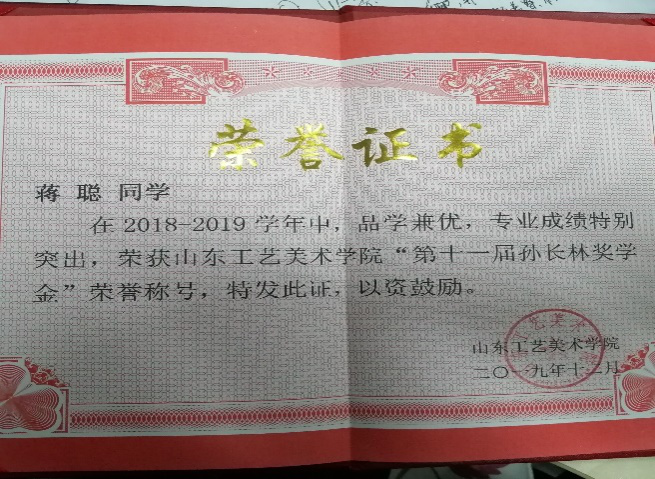 荣誉证书
蒋 聪 同学
在 2018-2019 学年中，品学兼优，专业成绩特别
突出，荣获山东工艺美术学院“第十一届孙长林奖学
金”荣誉称号，特发此证，以资鼓励。
山东工艺美术学院
二〇一九年十二月